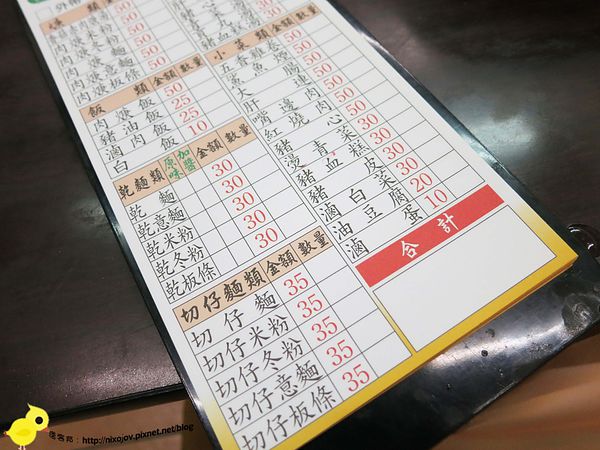 外帶
類 金額 數量
肉羹米粉 50
肉羹冬粉 50
肉羹意麵 50
肉羹板條 50
飯類 金額 數量
肉羹飯 50
豬油飯 25
滷肉飯 25
白飯 10
乾麵類 原味 加醬 金額 數量
乾麵 30
乾意麵 30
乾米粉 30
乾冬粉 30
乾板條 30
切仔麵類 金額 數量
切仔麵 35
切仔米粉 35
切仔冬粉 35
切仔意麵 35
切仔板條 35
小菜類 金額 數量
大腸
肝連
嘴邊肉
紅燒肉
豬心
燙青菜
豬血糕
豬皮
滷白菜
油豆腐 20
滷蛋 10
合計
痞客邦：http://nixojov.pixnet.net/blog